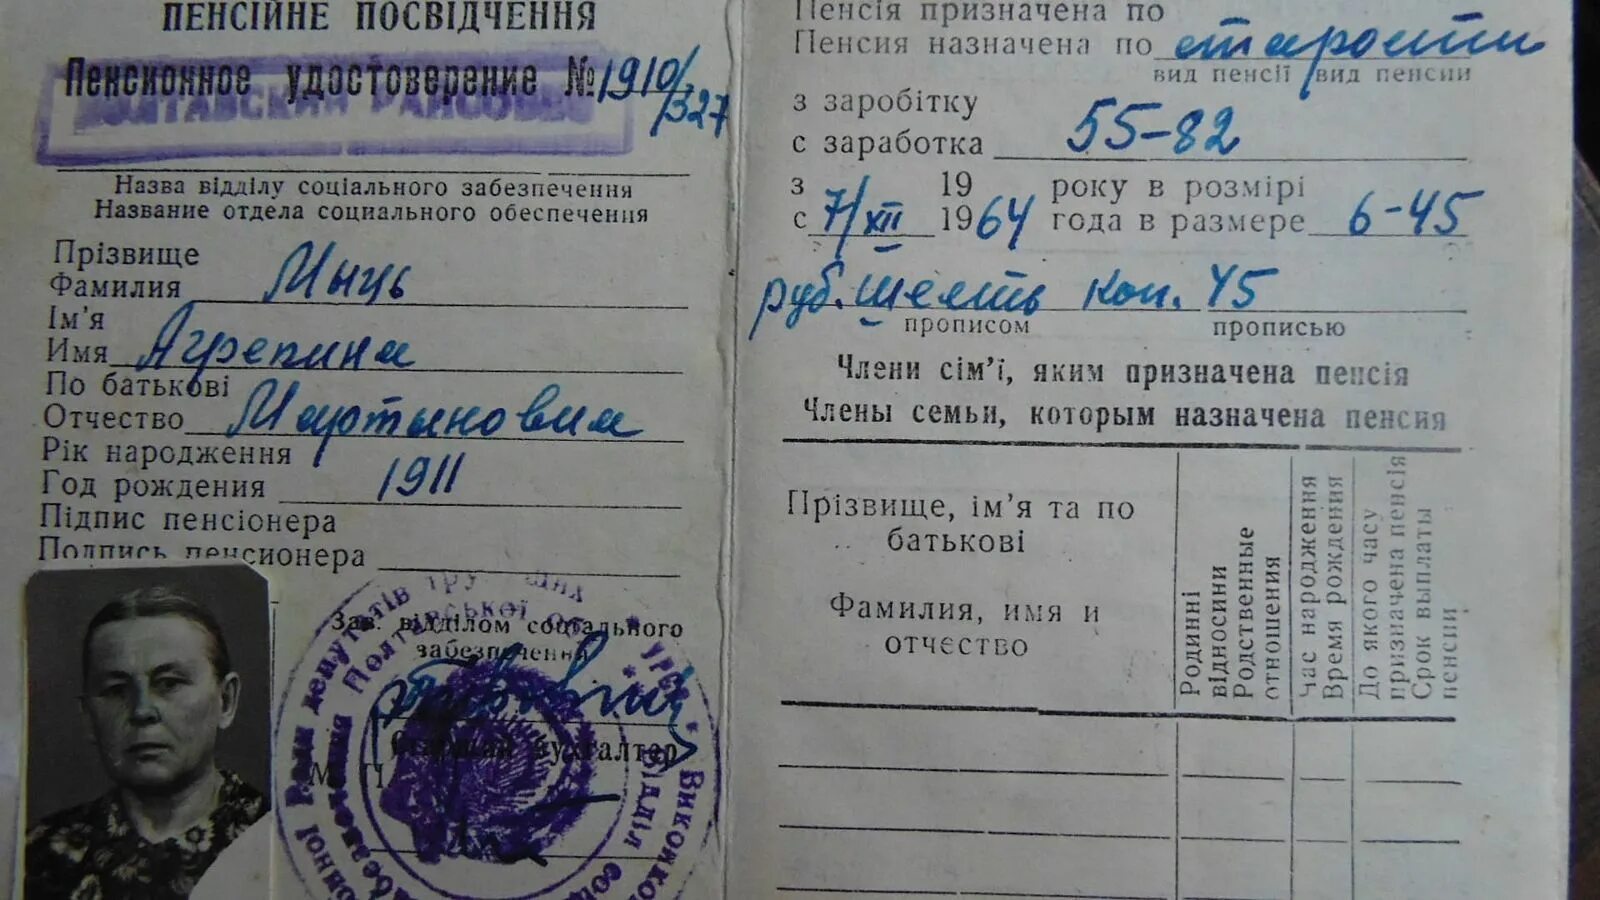 ПЕНСІЙНЕ ПОСВІДЧЕННЯ
Пенсионное удостоверение № 1910/327
ПОЛТАВСКИЙ РАЙСОБЕС
Назва відділу соціального забезпечення
Название отдела социального обеспечения
Прізвище
Фамилия Мыць
Ім'я
Имя Агрепина
По батькові
Отчество Мартыновна
Рік народження
Год рождения 1911
Підпис пенсіонера
Подпись пенсионера
Зав. відділом соціального
забезпечення
Старший бухгалтер
М. П.
Пенсія призначена по
Пенсия назначена по старости
вид пенсії вид пенсии
з заробітку
с заработка 55-82
з 19 року в розмірі
с 7/XII 1964 года в размере 6-45
руб. шесть коп. 45
прописом прописью
Члени сім'ї, яким призначена пенсія
Члены семьи, которым назначена пенсия
Прізвище, ім'я та по
батькові
Фамилия, имя и
отчество
Родинні
відносини
Родственные
отношения
Час народження
Время рождения
До якого часу
призначена пенсія
Срок выплаты
пенсии